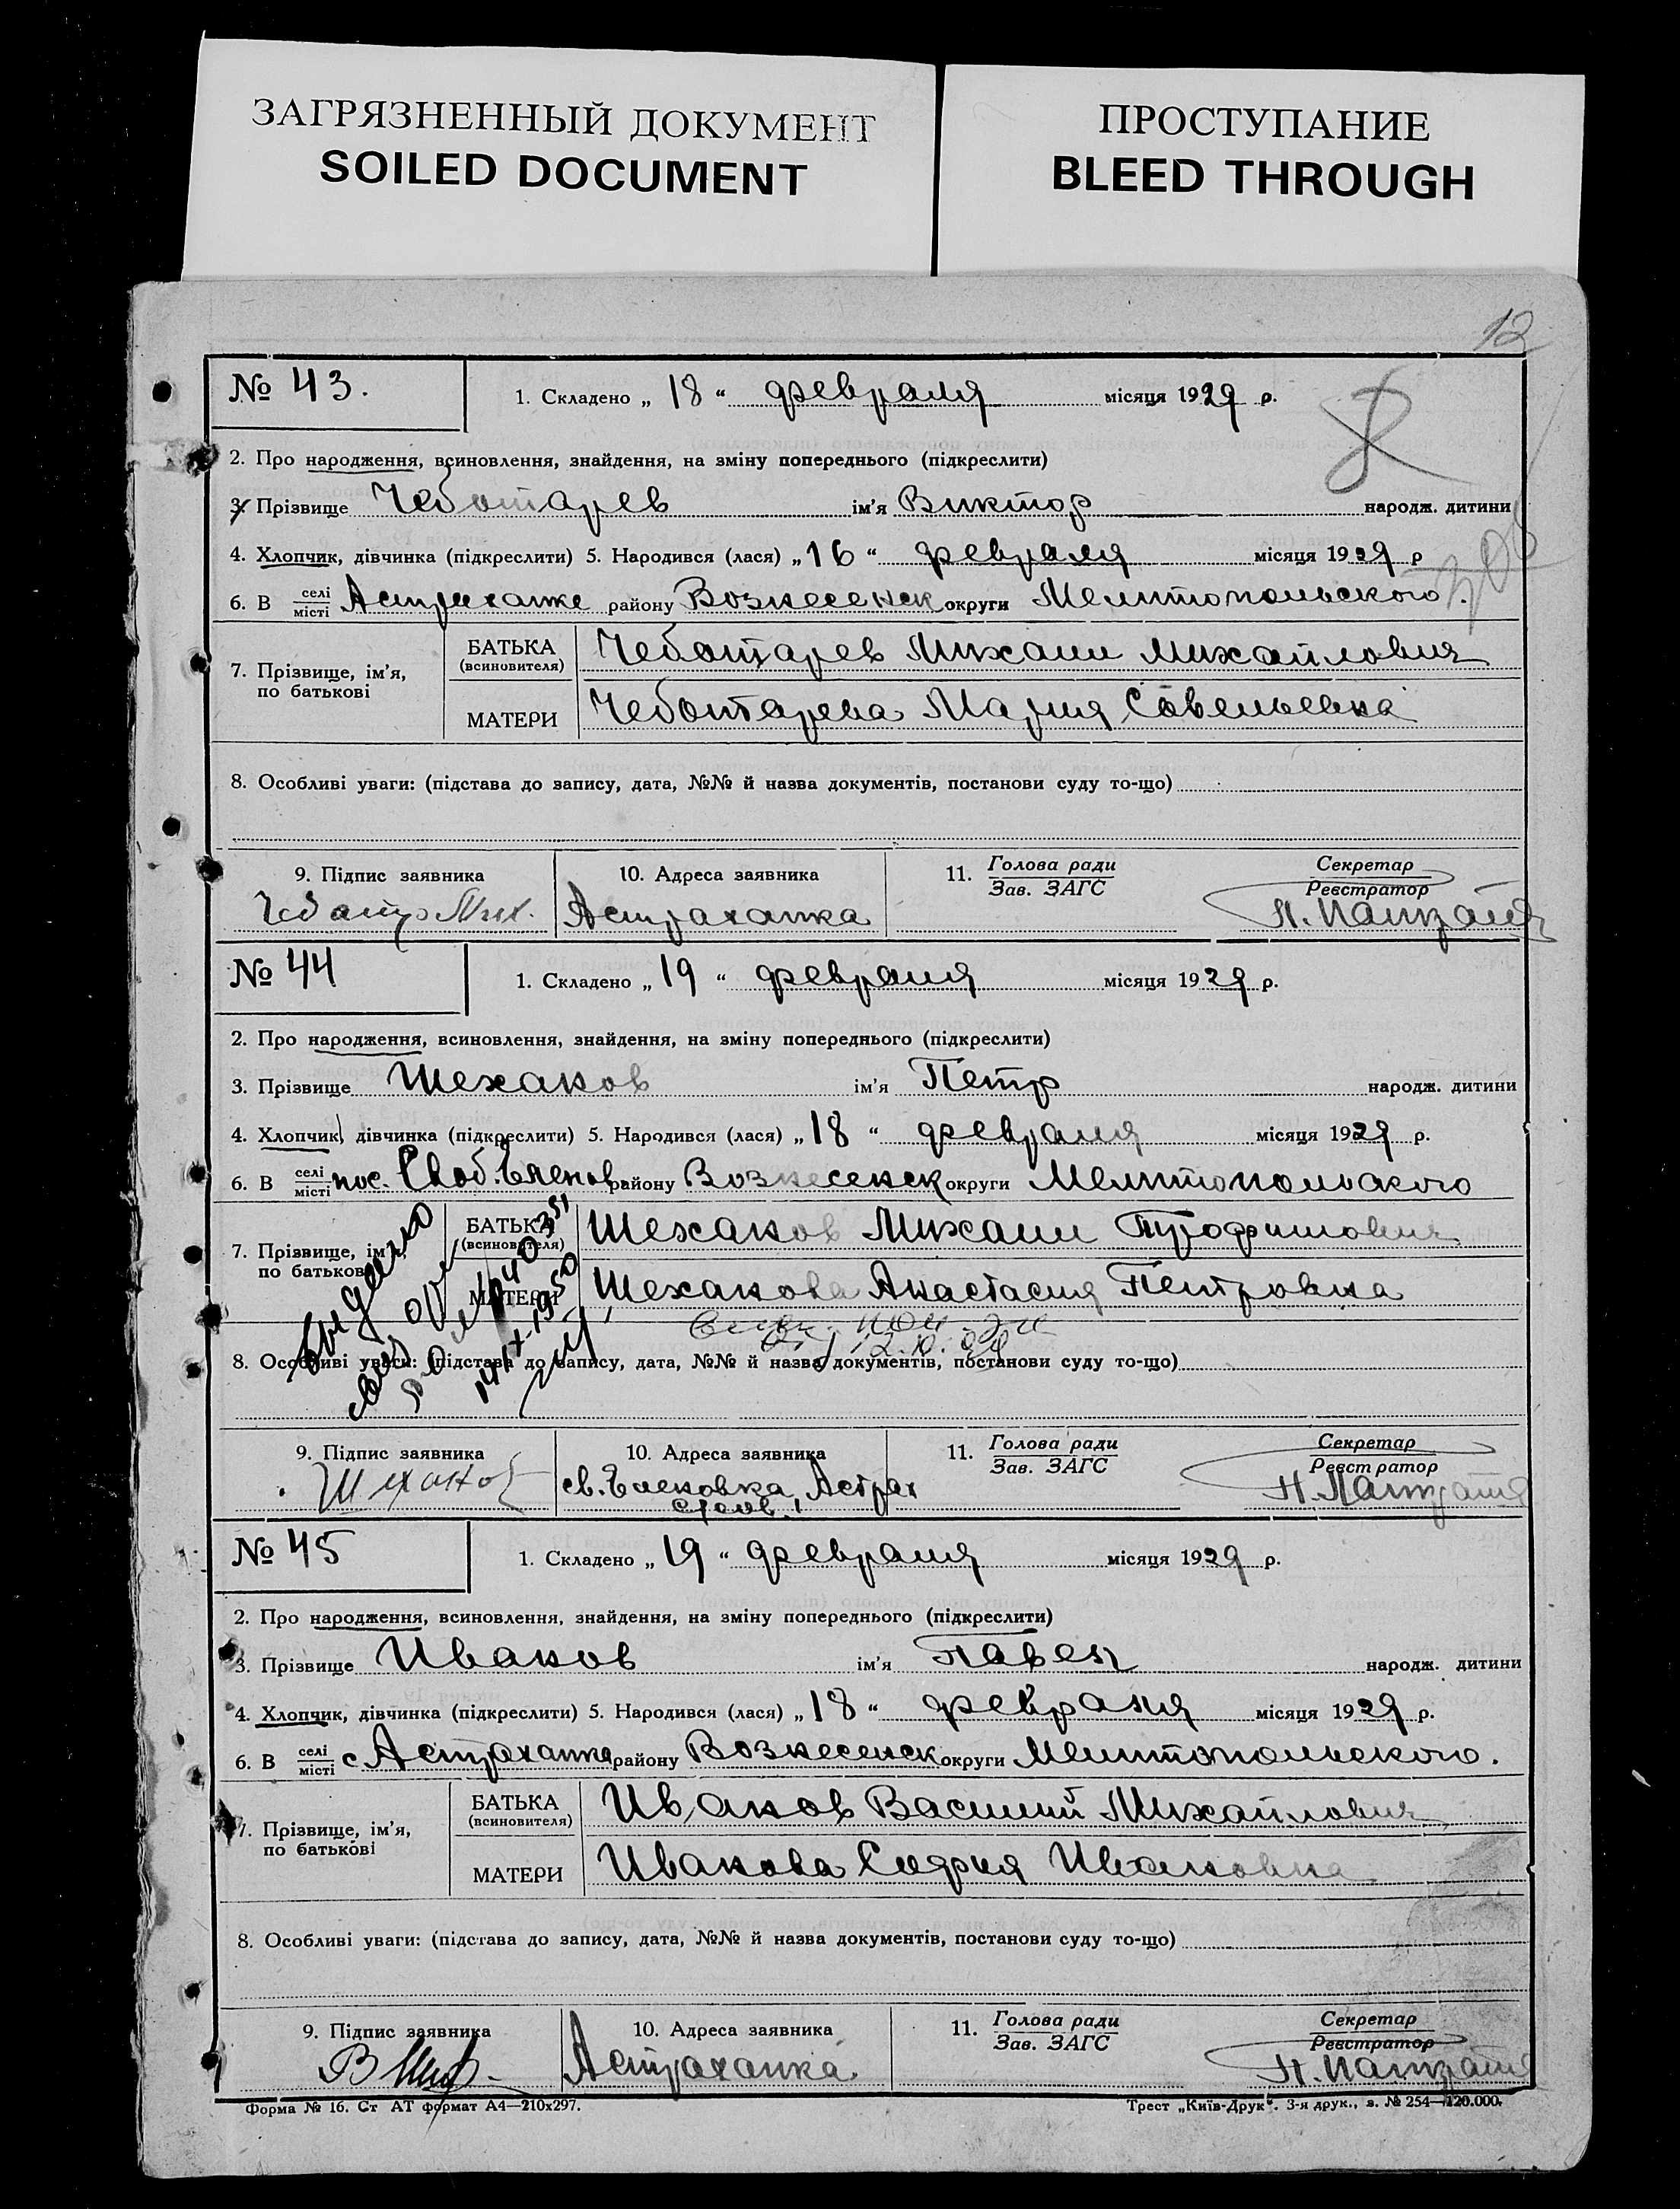 ЗАГРЯЗНЕННЫЙ ДОКУМЕНТ
SOILED DOCUMENT
ПРОСТУПАНИЕ
BLEED THROUGH
12
№ 43.
1. Складено „ 18 “ февраля місяця 1929 р.
2. Про народження, всиновлення, знайдення, на зміну попереднього (підкреслити)
3. Прізвище Чеботарев ім'я Виктор народж. дитини
4. Хлопчик, дівчинка (підкреслити) 5. Народився (лася) „ 16 “ февраля місяця 1929 р
6. В селі місті Астраханке району Вознесенск округи Мелитопольского.
7. Прізвище, ім'я, по батькові
БАТЬКА (всиновителя) Чеботарев Михаил Михайлович
МАТЕРИ Чеботарева Мария Савельевна
8. Особливі уваги: (підстава до запису, дата, №№ й назва документів, постанови суду то-що)
9. Підпис заявника
10. Адреса заявника
11. Голова ради Зав. ЗАГС
Секретар Реєстратор
Астраханка
№ 44
1. Складено „ 19 “ февраля місяця 1929 р.
2. Про народження, всиновлення, знайдення, на зміну попереднього (підкреслити)
3. Прізвище Шехаков ім'я Петр народж. дитини
4. Хлопчик, дівчинка (підкреслити) 5. Народився (лася) „ 18 “ февраля місяця 1929 р.
6. В селі місті пос. Своб. Еленов. району Вознесенск округи Мелитопольского
7. Прізвище, ім'я, по батькові
БАТЬКА (всиновителя) Шехаков Михаил Трофимович
МАТЕРИ Шехакова Анастасия Петровна
8. Особливі уваги: (підстава до запису, дата, №№ й назва документів, постанови суду то-що)
9. Підпис заявника
10. Адреса заявника
11. Голова ради Зав. ЗАГС
Секретар Реєстратор
Шехаков
св. Еленовка Астрах
№ 45
1. Складено „ 19 “ февраля місяця 1929 р.
2. Про народження, всиновлення, знайдення, на зміну попереднього (підкреслити)
3. Прізвище Иванов ім'я Павел народж. дитини
4. Хлопчик, дівчинка (підкреслити) 5. Народився (лася) „ 18 “ февраля місяця 1929 р.
6. В селі місті с Астраханка району Вознесенск округи Мелитопольского.
7. Прізвище, ім'я, по батькові
БАТЬКА (всиновителя) Иванов Василий Михайлович
МАТЕРИ Иванова София Ивановна
8. Особливі уваги: (підстава до запису, дата, №№ й назва документів, постанови суду то-що)
9. Підпис заявника
10. Адреса заявника
11. Голова ради Зав. ЗАГС
Секретар Реєстратор
Астраханка
Форма № 16. Ст АТ формат А4—210х297.
Трест „Київ-Друк“. 3-я друк., з. № 254—120.000.